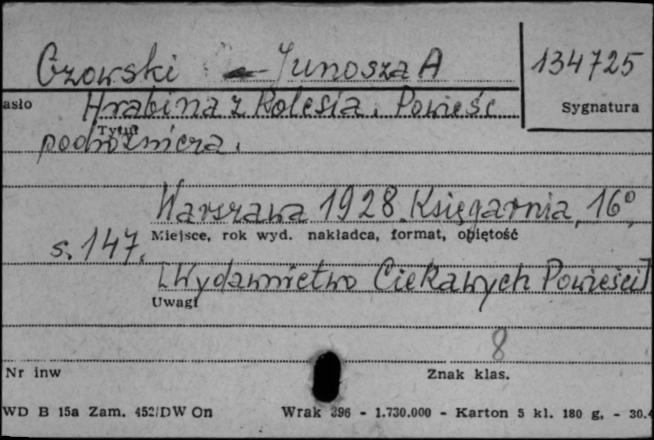 Czowski - Junosza A
134725
asło
Hrabina z Kolesia. Powieść
Sygnatura
Tytuł
podróżnicza.
Warszawa 1928. Księgarnia, 16°,
Miejsce, rok wyd. nakładca, format, objętość
s. 147.
[Wydawnictwo Ciekawych Powieści]
Uwagi
8
Nr inw
Znak klas.
WD B 15a Zam. 452/DW On Wrak 396 - 1.730.000 - Karton 5 kl. 180 g. - 30.4